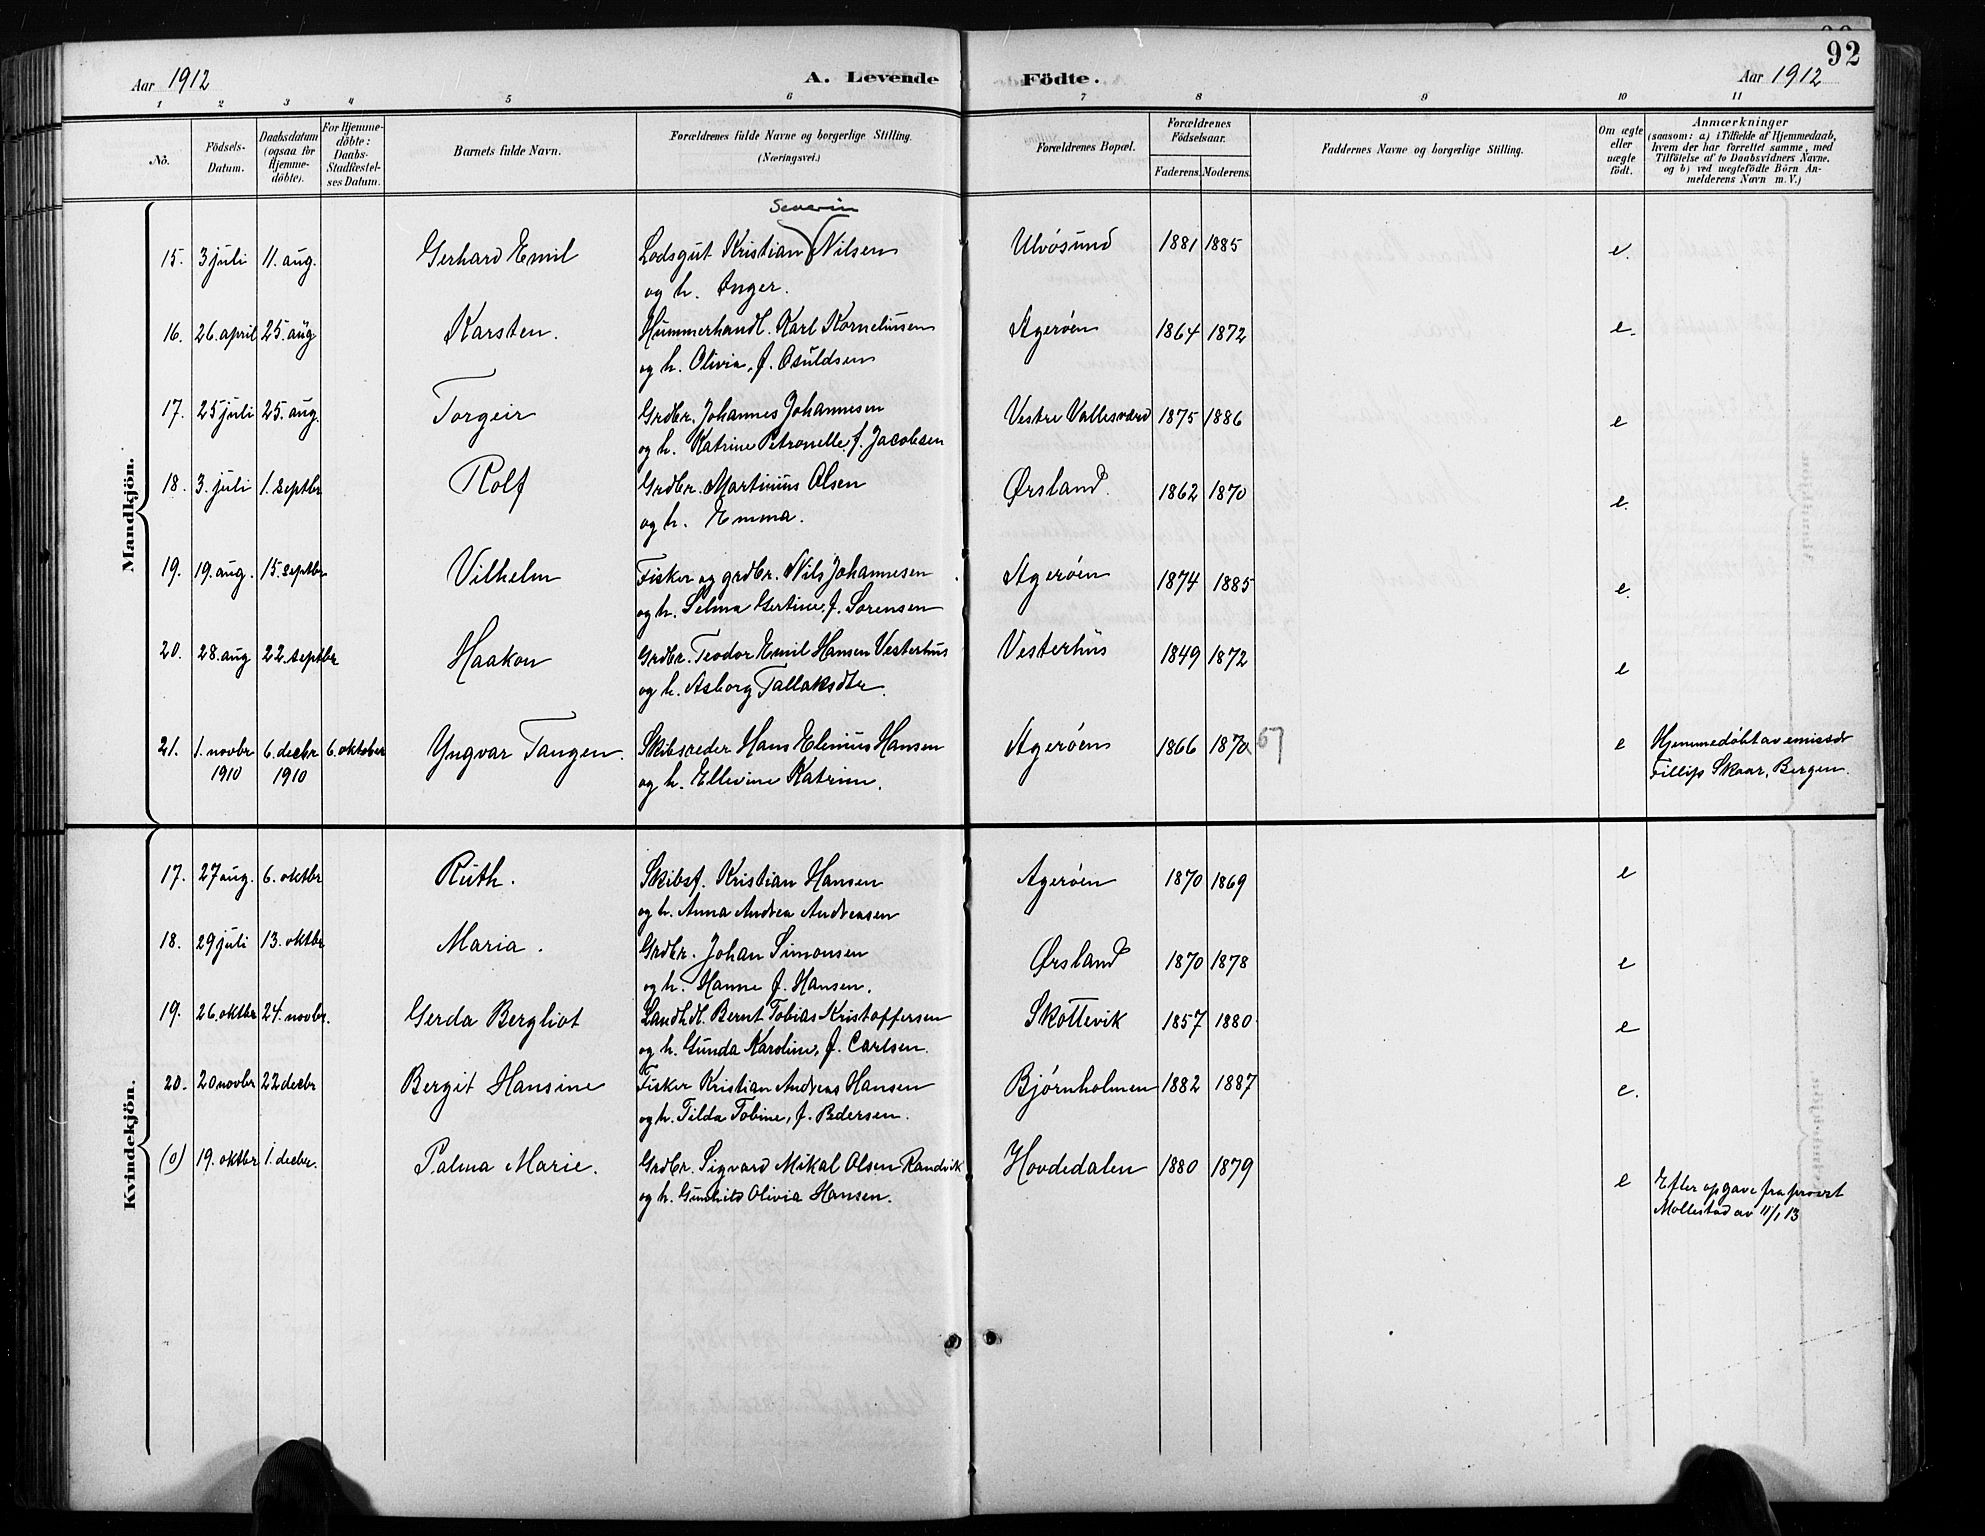 92
Aar 1912 A. Levende Födte. Aar 1912
1 2 3 4 5 6 7 8 9 10 11
No.
Födsels-Datum.
Daabsdatum (ogsaa for Hjemme-döbte).
For Hjemme-döbte: Daabs-Stadfæstel-ses Datum.
Barnets fulde Navn.
Forældrenes fulde Navne og borgerlige Stilling.
(Næringsvei.)
Forældrenes Bopæl.
Forældrenes Födselsaar.
Faderens. Moderens.
Faddernes Navne og borgerlige Stilling.
Om ægte eller uægte födt.
Anmærkninger
(saasom: a) i Tilfælde af Hjemmedaab,
hvem der har forrettet samme, med
Tilföielse af to Daabsvidners Navne.
og b) ved uægtefödte Börn An-
melderens Navn m. V.)
Mandkjön.
Severin
15. 3 juli 11. aug. Gerhard Emil Lodsgut Kristian Nilsen Ulvøsund 1881 1885 e.
og h. Inger.
16. 26. april 25. aug Karsten. Hummerhandl. Karl Korneliussen Agerøen 1864 1872 e.
og h. Olivia, f. Osuldsen
17. 25 juli 25. aug. Torgeir Grdbr. Johannes Johannesen Vestre Vallesværd 1875 1886 e
og h. Katrine Petronelle f. Jacobsen
18. 3. juli 1. septbr Rolf Grdbr. Martinius Olsen Ørsland. 1862 1870 e.
og h. Emma.
19. 19. aug. 15. septbr Vilhelm Fisker og grdbr. Nils Johannesen Agerøen 1874 1885 e.
og h. Selma Gertine, f. Sørensen
20. 28. aug 22. septbr Haakon Grdbr. Teodor Emil Hansen Vesterhus Vesterhus 1849 1872 e
og h. Asborg Tallaksdtr.
21. 1. novbr 6. decbr 6. oktober Yngvar Tangen. Skibsreder Hans Elenius Hansen Agerøen 1866 1870 67 e Hjemmedøbt av emissær
1910 1910 og h. Ellevine Katrine. Fillip Skaar, Bergen.
Kvindekjön.
17. 27 aug. 6. oktbr Ruth. Skibsf. Kristian Hansen Agerøen 1870 1869 e
og h. Anna Andrea Andreasen
18. 29 juli 13. oktbr Maria. Grdbr. Johan Simonsen Ørsland 1870 1878 e
og h. Hanne f. Hansen.
19. 26. oktbr 24. novbr. Gerda Bergliot Landhdl. Bernt Tobias Kristoffersen Skottevik 1857 1880 e
og h. Gunda Karoline, f. Carlsen.
20. 20 novbr 22 decbr Bergit Hansine Fisker Kristian Andreas Hansen Bjørnholmen 1882 1887 e.
og h. Tilda Tobine, f. Pedersen.
(0) 19. oktbr 1. decbr. Palma Marie. Grdbr. Sigvard Mikal Olsen Randvik Hovdedalen 1880 1879 e Efter opgave fra provst
og h. Gunhild Olivia Hansen. Møllestad av 11/1 13